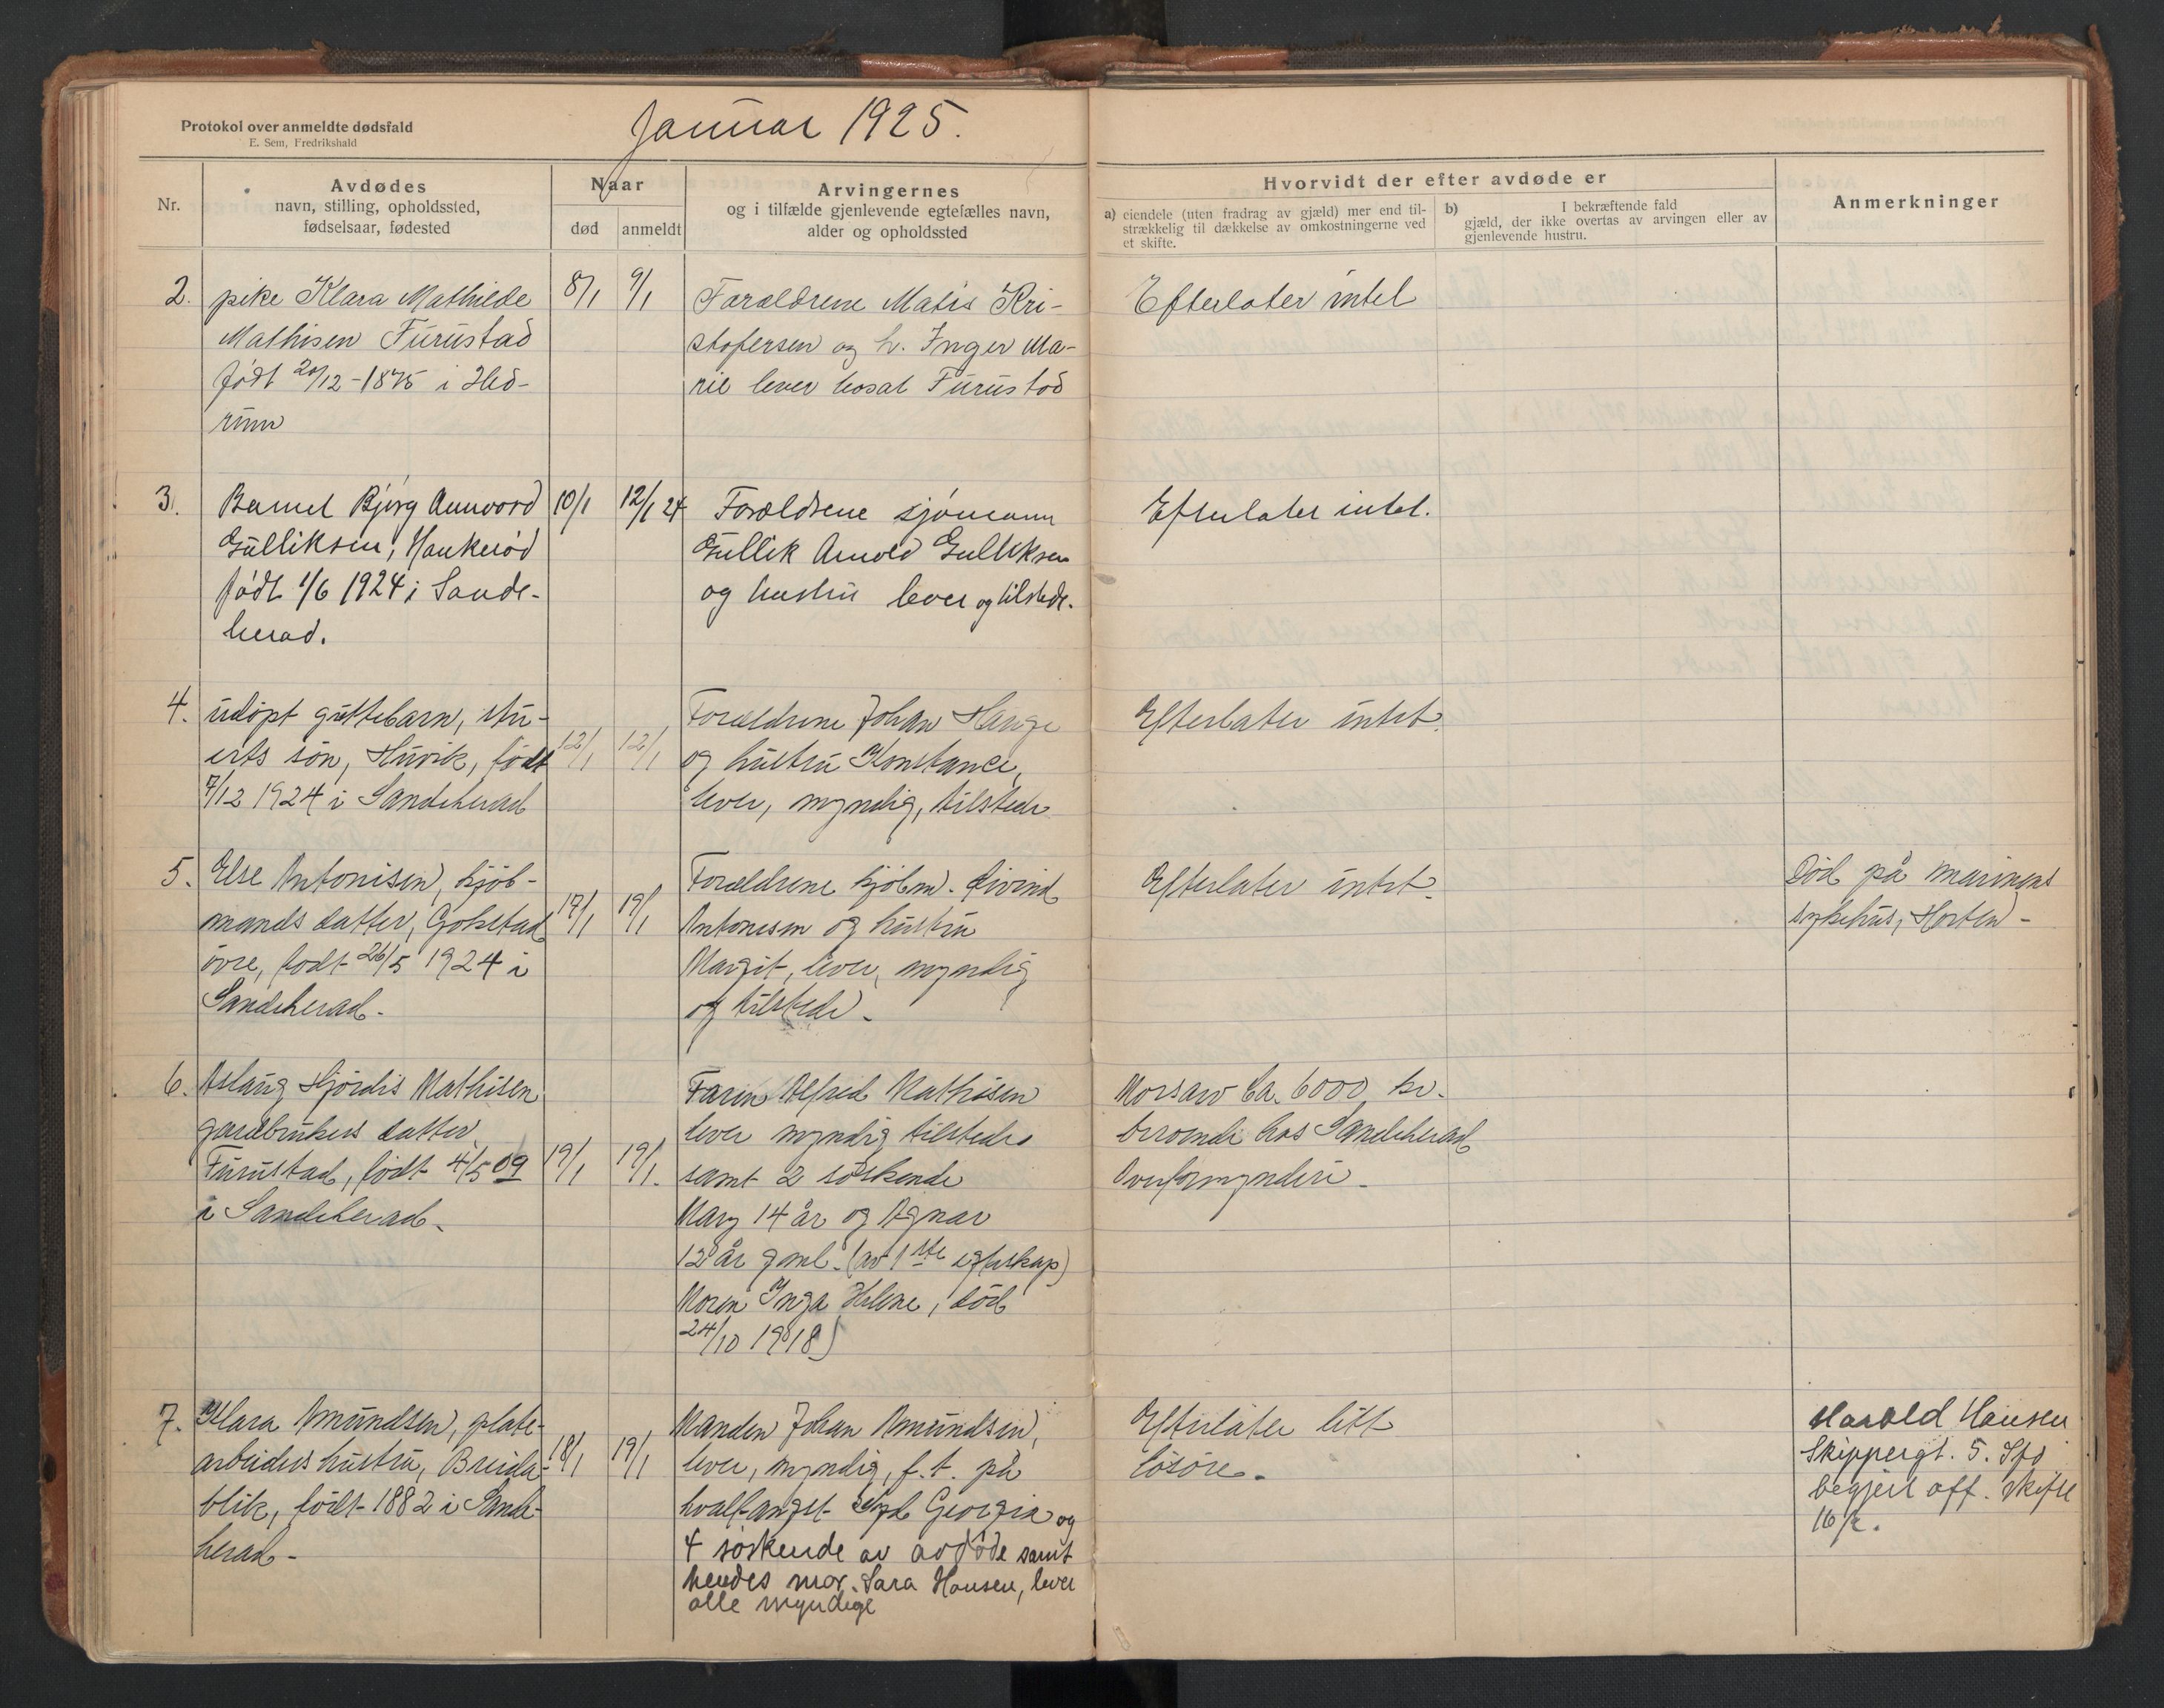 Protokol over anmeldte dødsfald
E. Sem, Fredrikshald
Januar 1925.
Nr.
Avdødes
navn, stilling, opholdssted,
fødselsaar, fødested
Naar
død
anmeldt
Arvingernes
og i tilfælde gjenlevende egtefælles navn,
alder og opholdssted
Hvorvidt der efter avdøde er
a) eiendele (uten fradrag av gjæld) mer end til-
strækkelig til dækkelse av omkostningerne ved
et skifte.
b) I bekræftende fald
gjæld, der ikke overtas av arvingen eller av
gjenlevende hustru.
Anmerkninger
2.
pike Klara Mathilde
Mathisen Furustad
født 20/12-1875 i Hed-
rum
8/1
9/1
Forældrene Matis Kri-
stofersen og h. Inger Ma-
rie lever bosat Furustad
Efterlater intet
3.
Barnet Bjørg
Gulliksen, Haukerød
født 1/6 1924 i Sande-
herad.
10/1
12/1 24
Forældrene sjømann
Gullik Arnold Gulliksen
og hustru lever og tilstede.
Efterlater intet.
4.
udøpt guttebarn, stu-
erts søn, Huvik, født
7/12 1924 i Sandeherad
12/1
12/1
Forældrene Johan Hauge
og hustru Konstance,
lever, myndig, tilstede
Efterlater intet.
5.
Else Antonisen, kjøb-
mands datter, Gokstad
øvre, født 26/5 1924 i
Sandeherad.
17/1
19/1
Forældrene kjøbm. Eivind
Antonisen og hustru
Margit, lever, myndig
og tilstede.
Efterlater intet.
Død på marinens
sykehus, Horten -
6.
Aslaug Hjørdis Mathisen
gardbrukers datter
Furustad, født 4/5 09
i Sandeherad.
19/1
19/1.
Faren Alfred Mathisen
lever myndig tilstede
samt 2 søskende
Mary 14 år og Agnar
12 år gml. (av 1ste egteskap)
Moren Inga Helene, død
24/10 1918)
Morsarv ca. 6000 kr.
beroende hos Sandeherad
Overformynderi.
7.
Klara Amundsen, plate-
arbeiders hustru, Breida-
blik, født 1882 i Sande-
herad -
18/1
19/1
Manden Johan Amundsen,
lever, myndig, f. t. på
hvalfangst Syd Georgia og
4 søskende av avdøde samt
hendes mor. Sara Hansen, lever
alle myndige
Efterlater litt
løsøre.
Harald Hansen
Skippergt. 5. Sfd
begjert off. skifte
16/2.